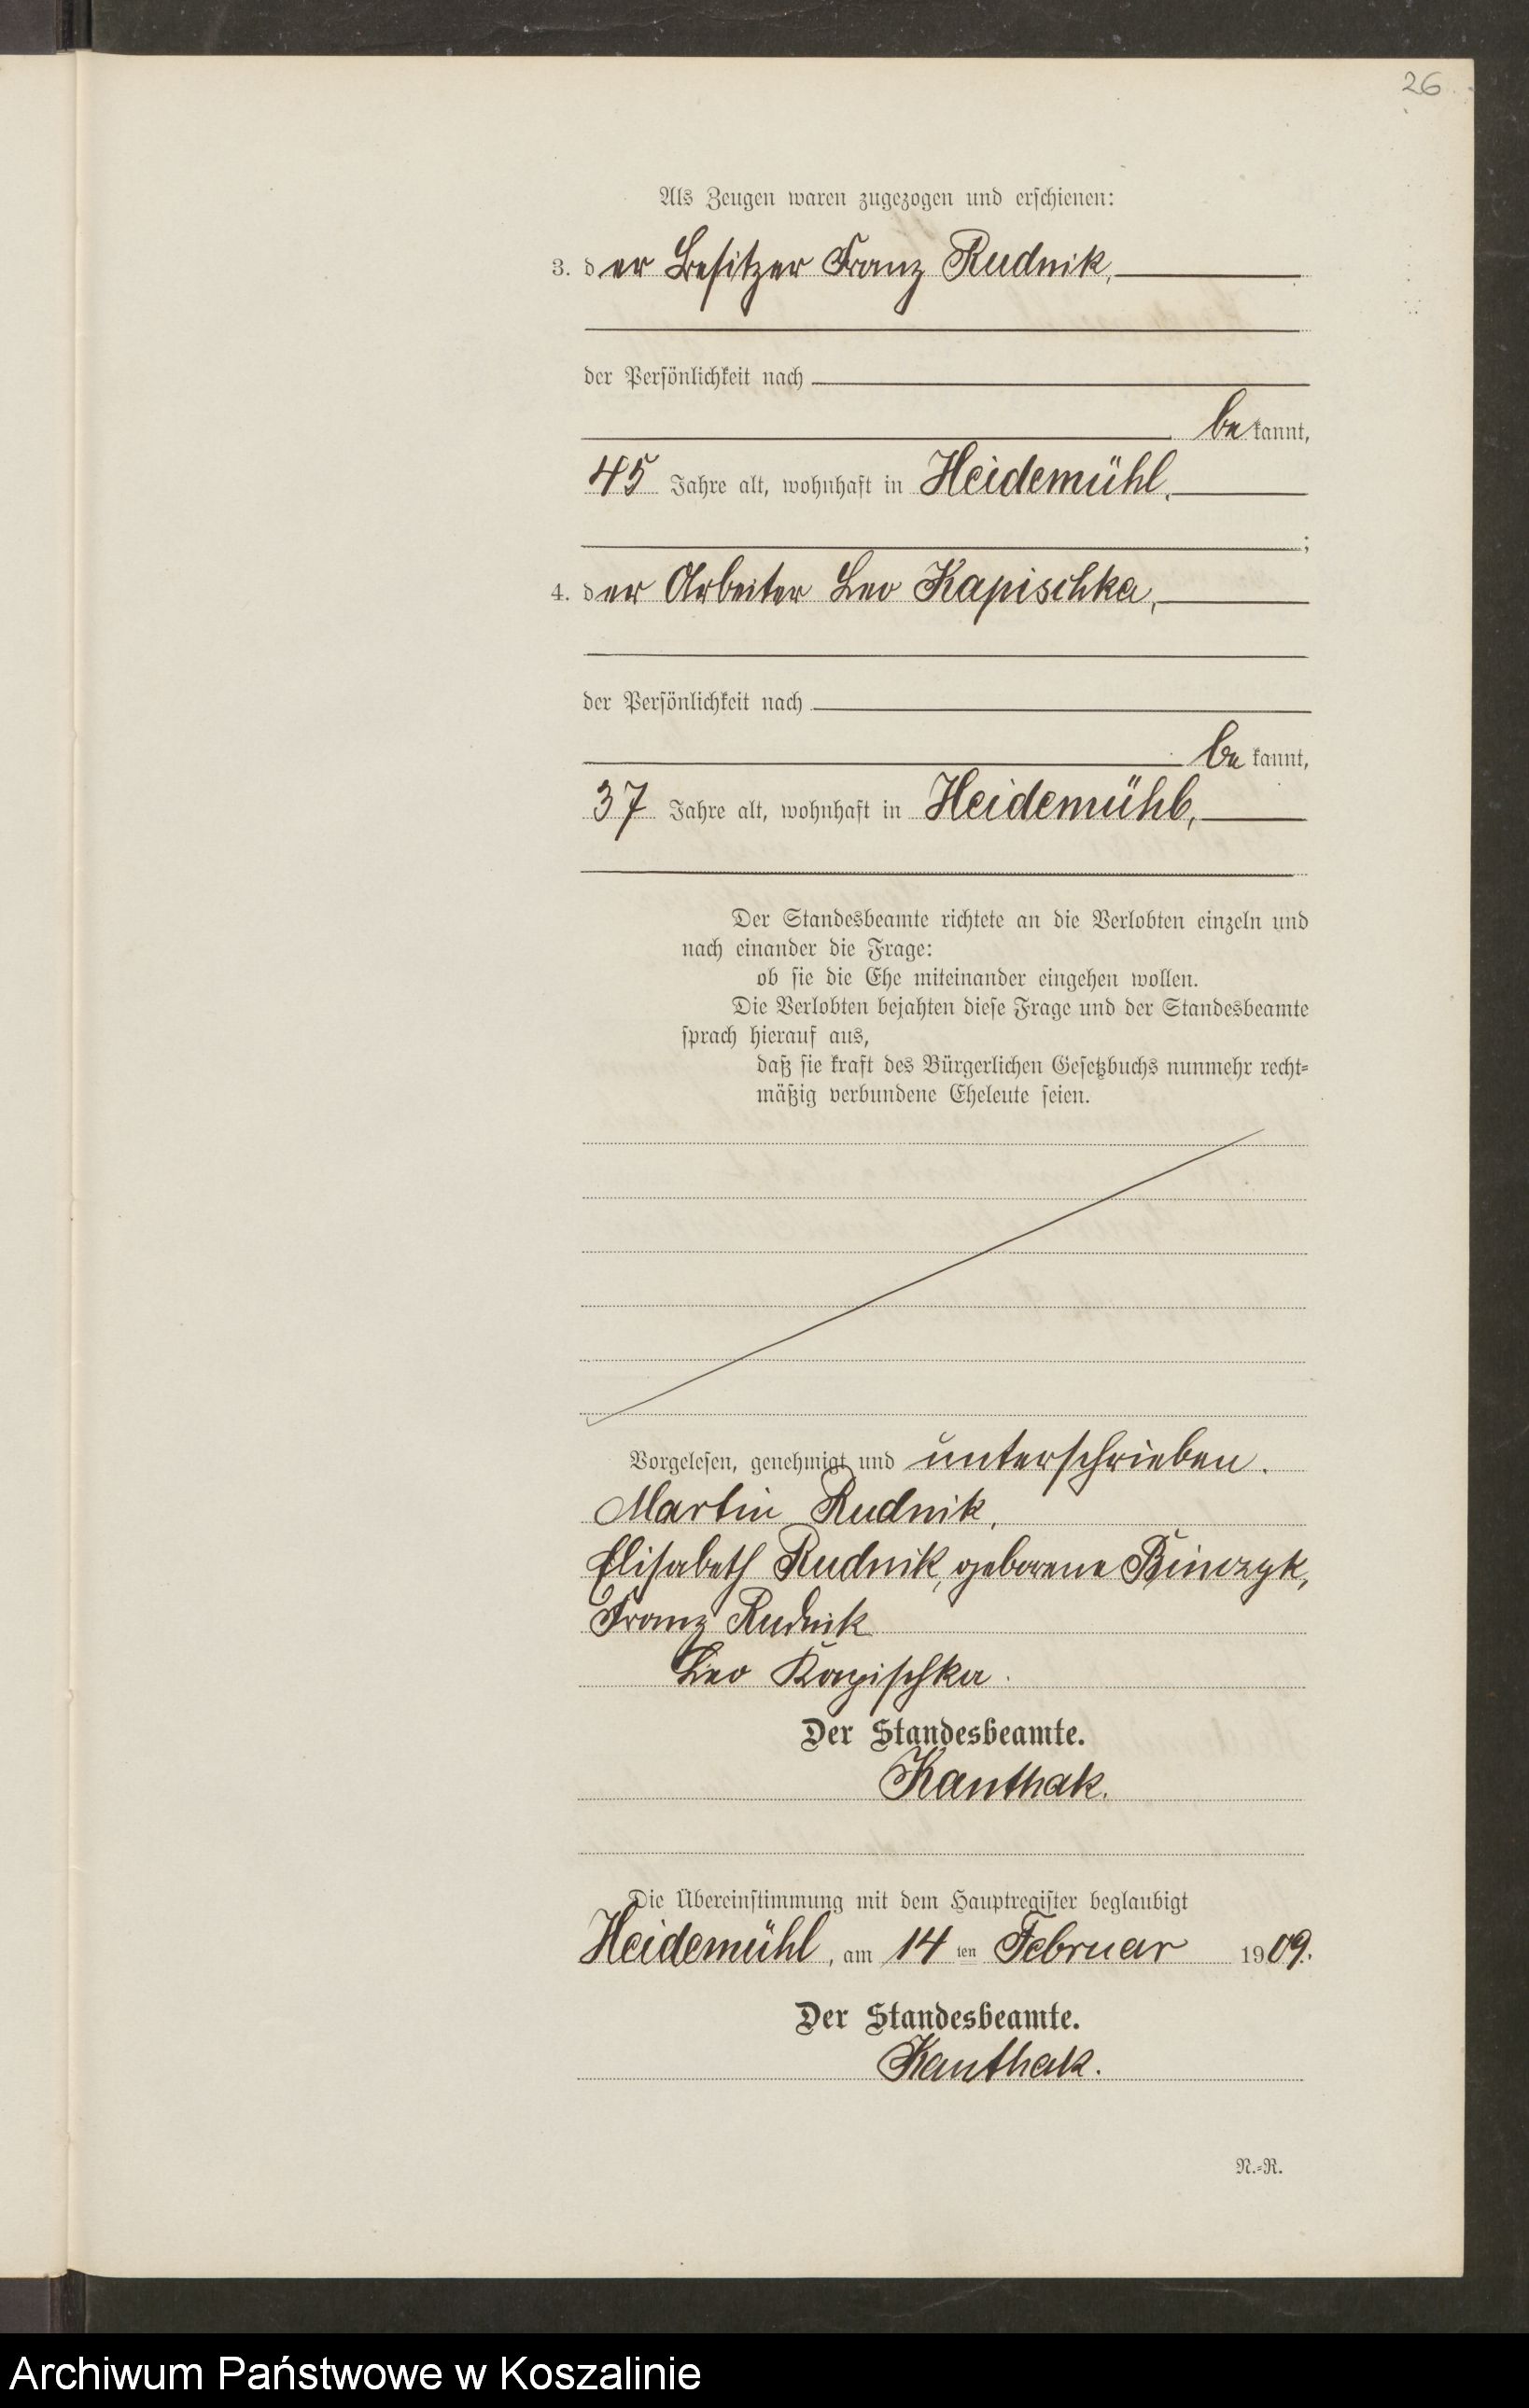 26
Als Zeugen waren zugezogen und erschienen:
3. der Besitzer Franz Rudnik,
der Persönlichkeit nach
bekannt,
45 Jahre alt, wohnhaft in Heidemühl,
;
4. der Arbeiter Leo Kapischka,
der Persönlichkeit nach
bekannt,
37 Jahre alt, wohnhaft in Heidemühl,
Der Standesbeamte richtete an die Verlobten einzeln und
nach einander die Frage:
ob sie die Ehe miteinander eingehen wollen.
Die Verlobten bejahten diese Frage und der Standesbeamte
sprach hierauf aus,
daß sie kraft des Bürgerlichen Gesetzbuchs nunmehr recht-
mäßig verbundene Eheleute seien.
Vorgelesen, genehmigt und unterschrieben.
Martin Rudnik,
Elisabeth Rudnik, geborene Binczyk,
Franz Rudnik
Leo Kapischka.
Der Standesbeamte.
Kanthak.
Die Übereinstimmung mit dem Hauptregister beglaubigt
Heidemühl, am 14ten Februar 1909.
Der Standesbeamte.
Kanthak.
N.-R.
Archiwum Państwowe w Koszalinie